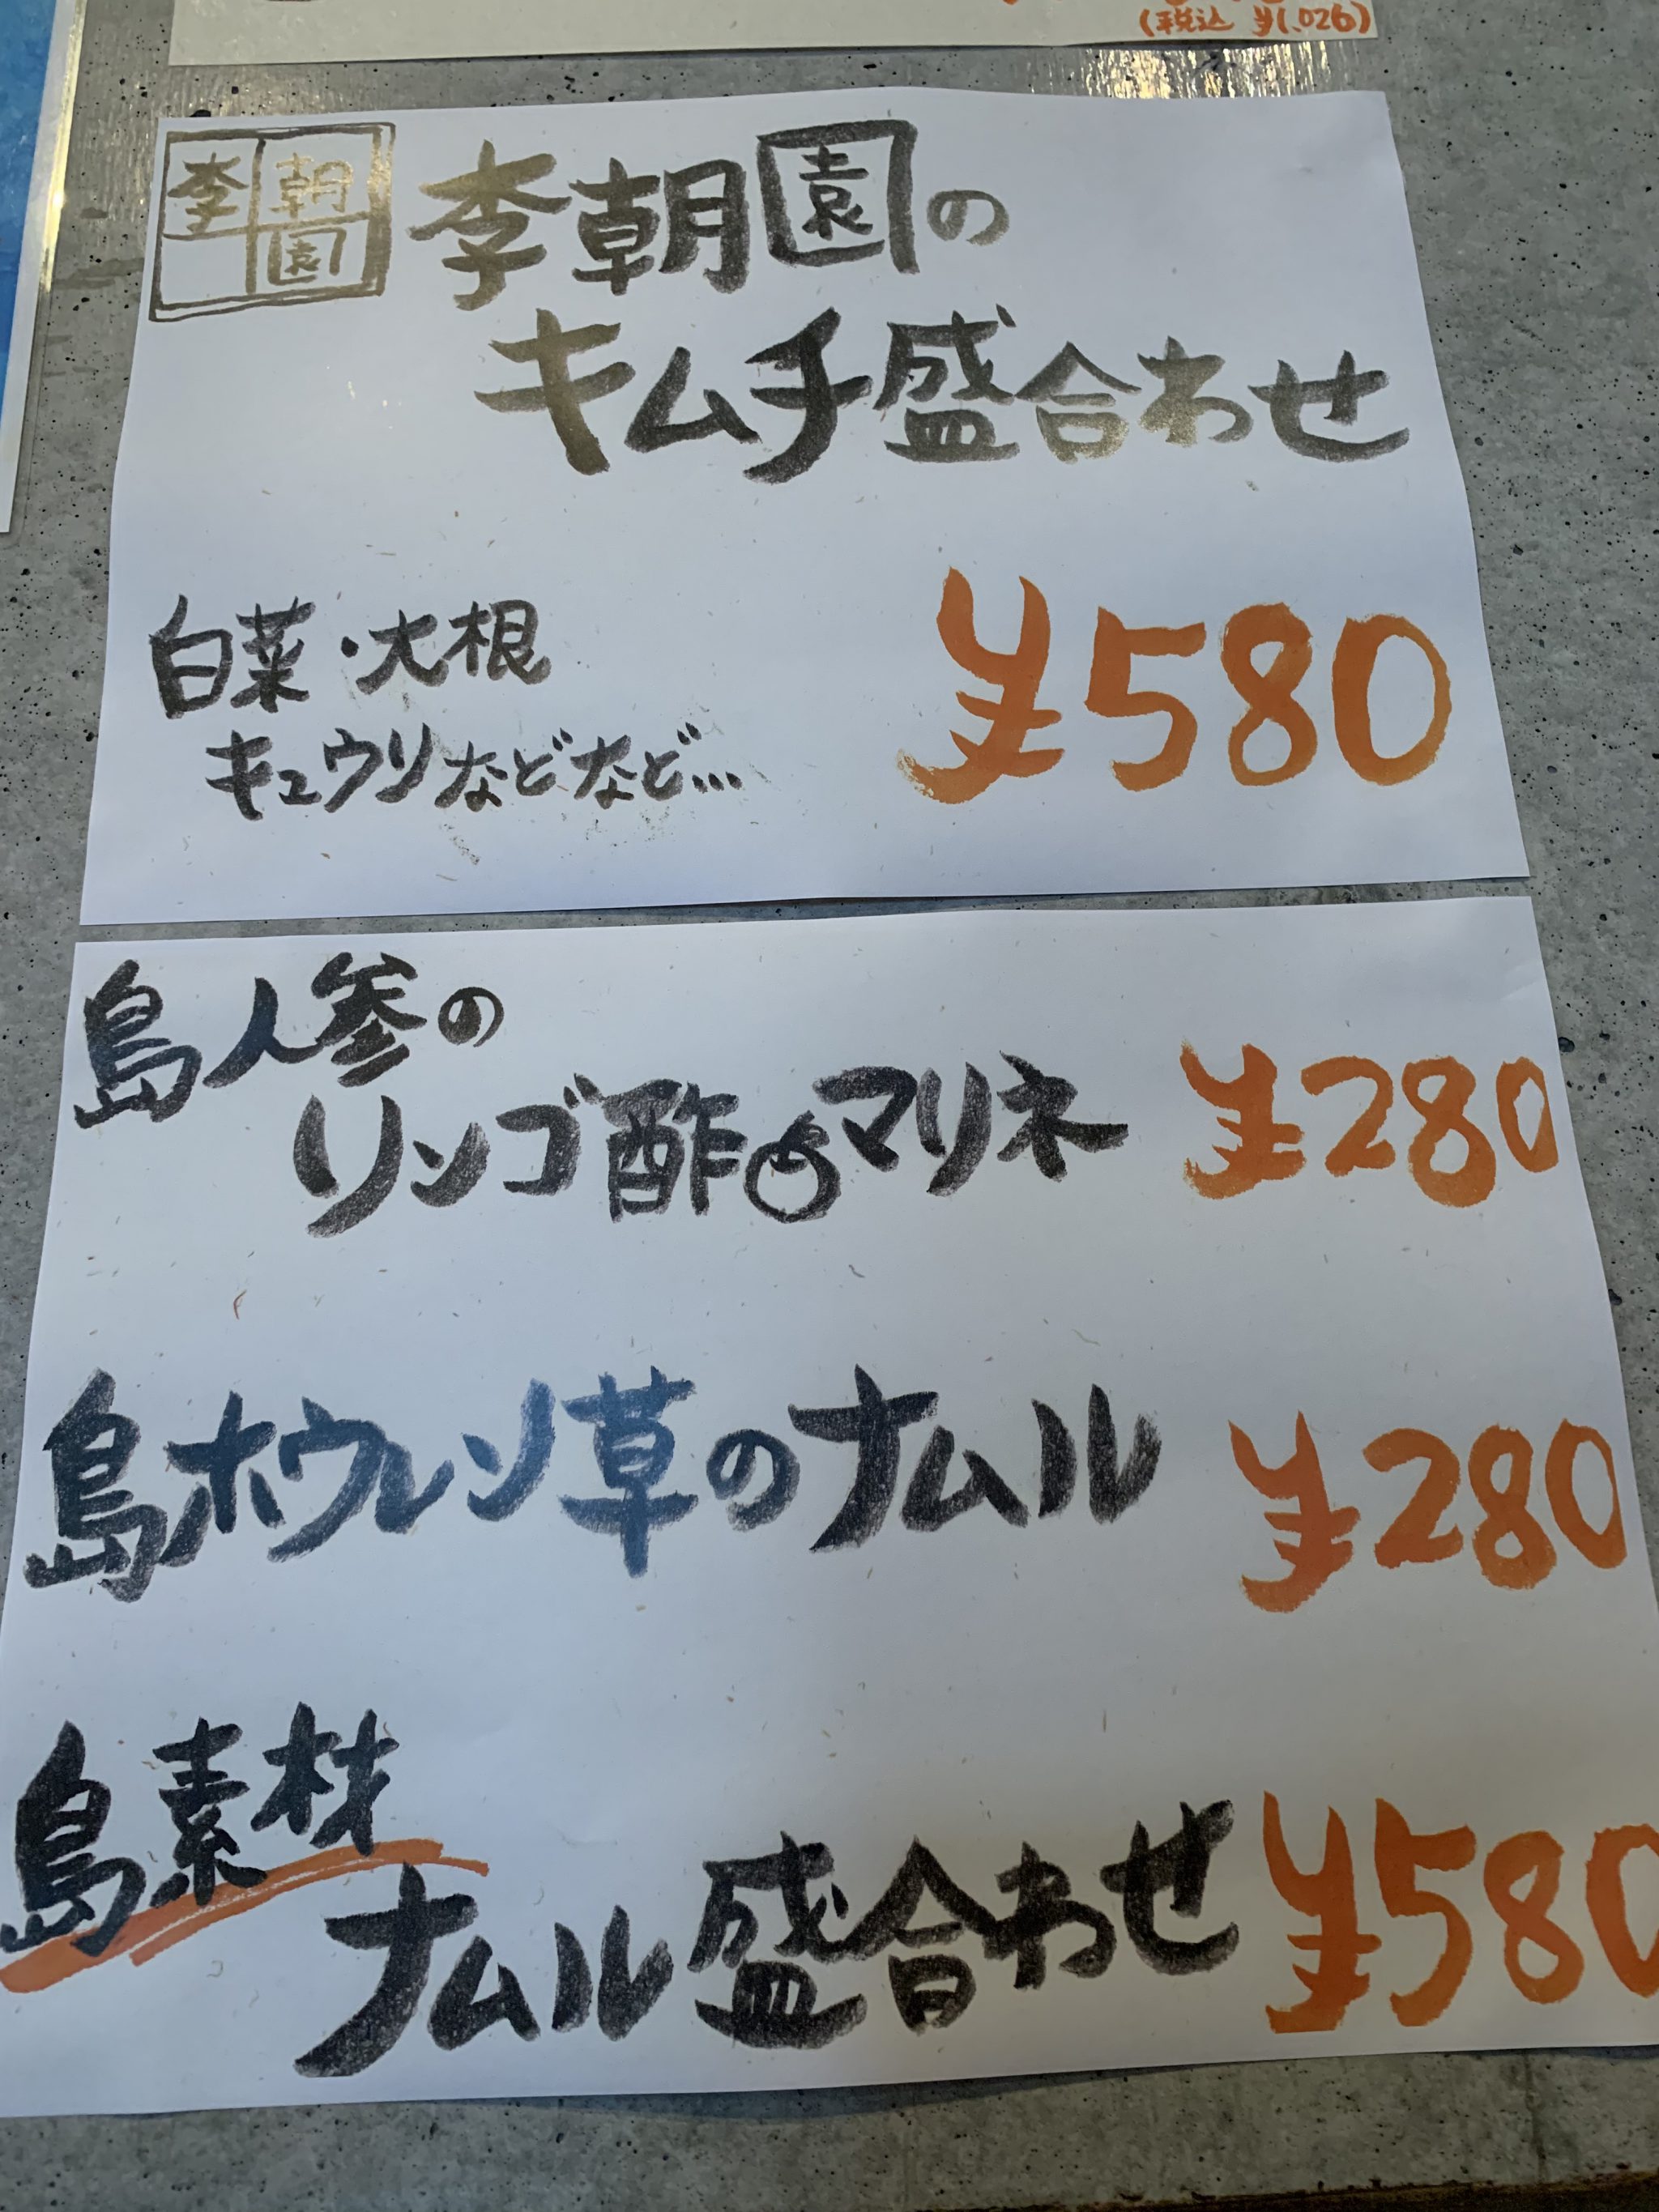 (税込 ¥1,026)
李朝園
李朝園の
キムチ盛合わせ
白菜・大根
キュウリなどなど…
¥580
島人参の
リンゴ酢のマリネ ¥280
島ホウレン草のナムル ¥280
島素材
ナムル盛合わせ ¥580